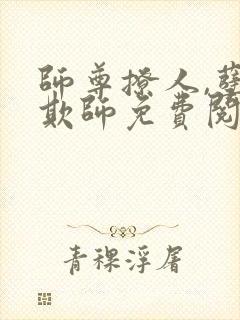 師尊撩人,孽
欺師免費閱
青稞浮屠